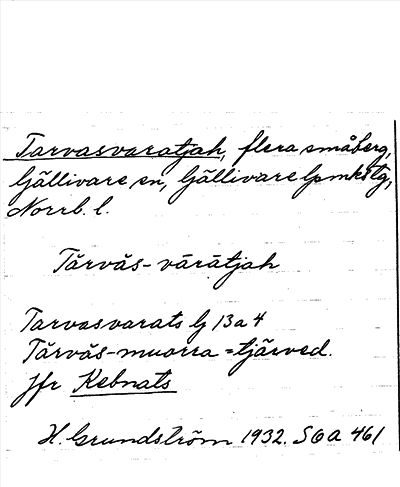 Tarvasvaratjah, flera småberg,
Gällivare sn, Gällivare lpmkstg,
Norrb. l.
Tărvăs-vārātjah
Tarvasvarats lj 13a4
Tărvăs-muorra = tjärved.
Jfr Kebnats
H. Grundström 1932. S6a 461